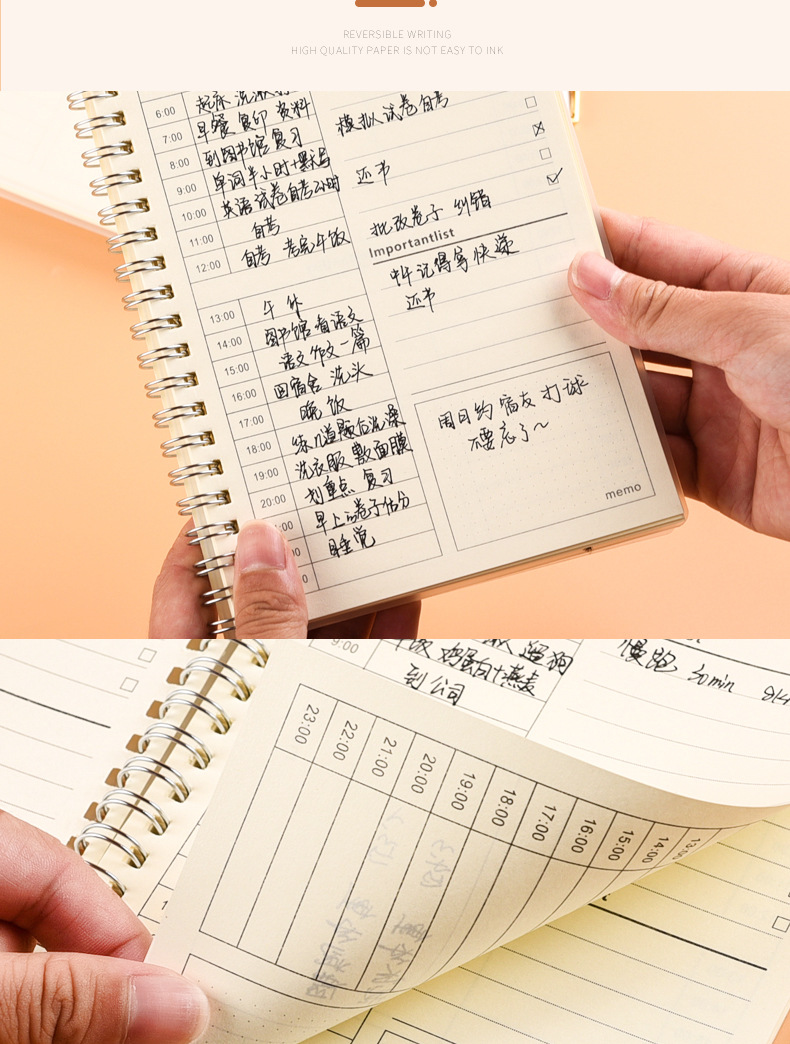 REVERSIBLE WRITING
HIGH QUALITY PAPER IS NOT EASY TO INK
6:00 起床 洗漱
7:00 早餐 复印 资料
8:00 到图书馆 复习
9:00 单词半小时+默写
10:00 英语试卷自考2小时
11:00 自考
12:00 自考 考完午饭
13:00 午休
14:00 图书馆看语文
15:00 语文作文一篇
16:00 回宿舍 洗头
17:00 晚饭
18:00 练几道题后洗澡
19:00 洗衣服 敷面膜
20:00 划重点 复习
:00 早上的卷子估分
睡觉
模拟试卷自考
还书
批改卷子 纠错
Importantlist
中午记得拿快递
还书
周日约宿友打球
不要忘了~
memo
9:00
鸡蛋白+燕麦
遛狗
到公司
慢跑 30min
23:00
22:00
21:00
20:00
19:00
18:00
17:00
16:00
15:00
14:00
13:00